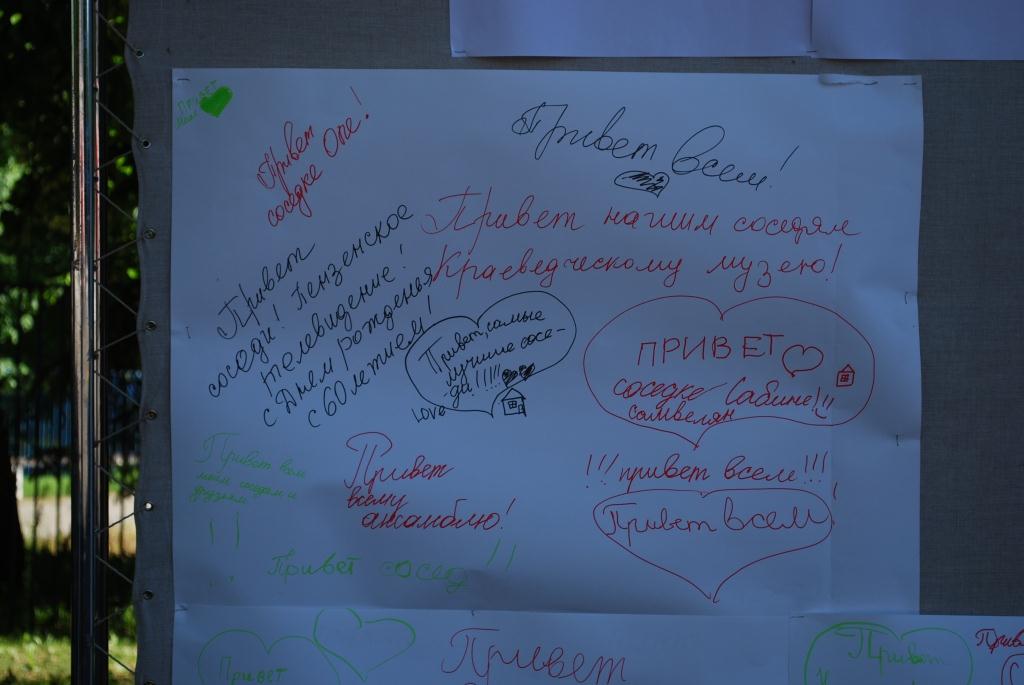 ПРИВЕТ
Привет
соседке Оле!
Привет всем!
Привет нашим соседям
Краеведческому музею!
Привет
соседи! Пензенское
телевидение!
с Днем рожденья
с 60 летием!
Привет, самые
лучшие сосе-
-да!!!!!
LOVE
ПРИВЕТ
соседке Сабине!!!
самвелян
Привет вам
моим соседям и
друзьям
!!
Привет
всему
ансамблю!
!!!привет всем!!!
Привет всем!
Привет сосед!!
Привет
Привет
Привет